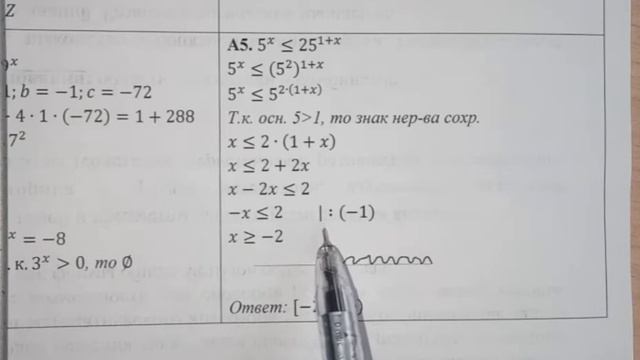 Z
9ˣ
1; b = −1; c = −72
− 4 · 1 · (−72) = 1 + 288
7²
ˣ = −8
. к. 3ˣ > 0, то ∅
А5. 5ˣ ≤ 25¹⁺ˣ
5ˣ ≤ (5²)¹⁺ˣ
5ˣ ≤ 5²˙⁽¹⁺ˣ⁾
Т.к. осн. 5>1, то знак нер-ва сохр.
x ≤ 2 · (1 + x)
x ≤ 2 + 2x
x − 2x ≤ 2
−x ≤ 2 | : (−1)
x ≥ −2
Ответ: [−